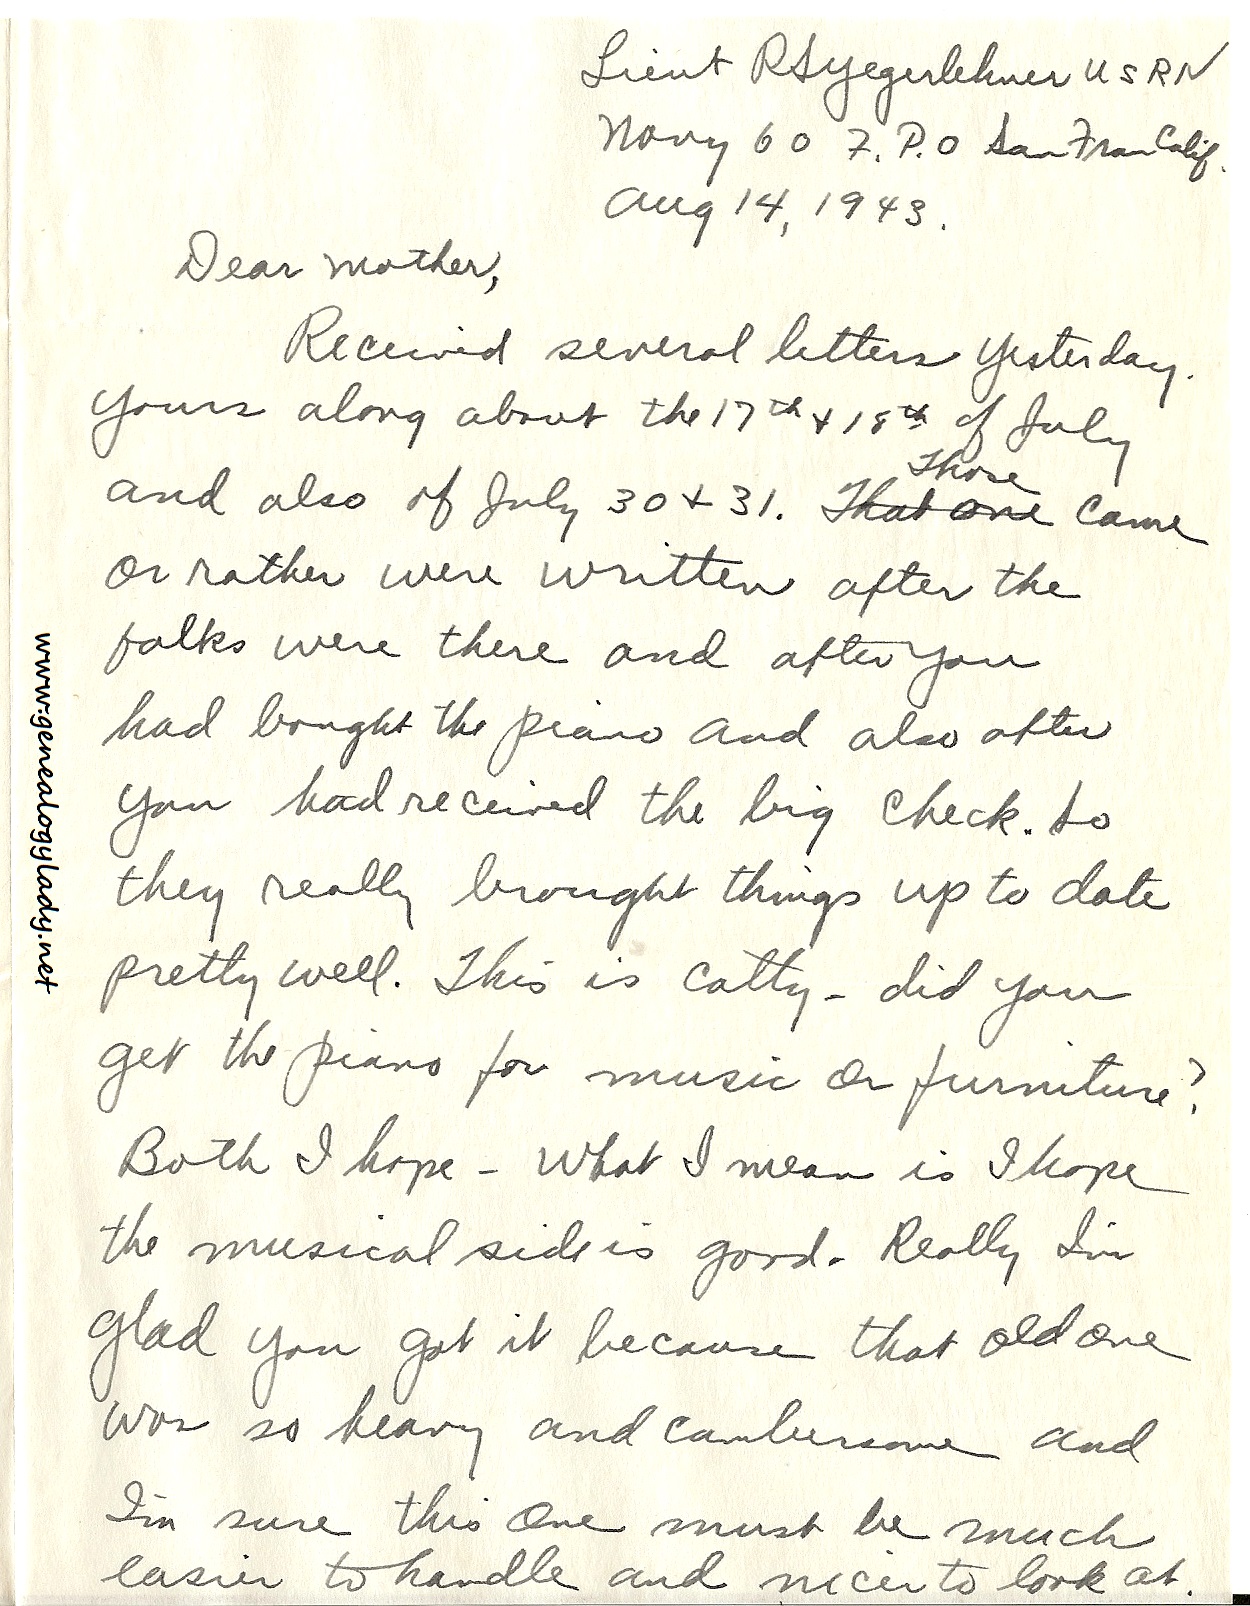 Lieut R S Yegerlehner U S R N
Navy 60 F.P.O San Fran Calif.
Aug 14, 1943.
Dear Mother,
Received several letters yesterday.
Yours along about the 17th + 18th of July
Those
and also of July 30 + 31. That one came
or rather were written after the
folks were there and after you
had bought the piano and also after
you had received the big check. So
they really brought things up to date
pretty well. This is catty - did you
get the piano for music or furniture?
Both I hope - What I mean is I hope
the musical side is good. Really I'm
glad you got it because that old one
was so heavy and cumbersome and
I'm sure this one must be much
easier to handle and nicer to look at.
www.genealogylady.net